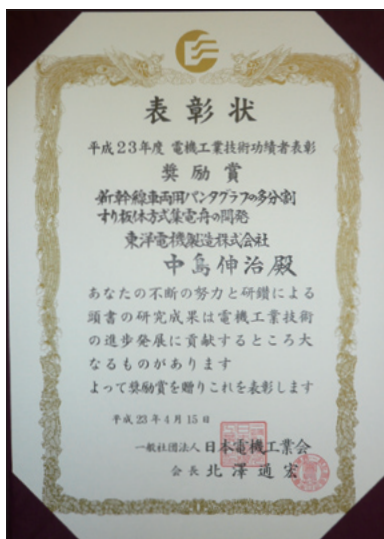 表彰状
平成23年度 電機工業技術功績者表彰
奨励賞
新幹線車両用パンタグラフの多分割
すり板体方式集電舟の開発
東洋電機製造株式会社
中島伸治殿
あなたの不断の努力と研鑽による
頭書の研究成果は電機工業技術
の進歩発展に貢献するところ大
なるものがあります
よって奨励賞を贈りこれを表彰します
平成23年4月15日
一般社団法人 日本電機工業会
会長 北澤通宏